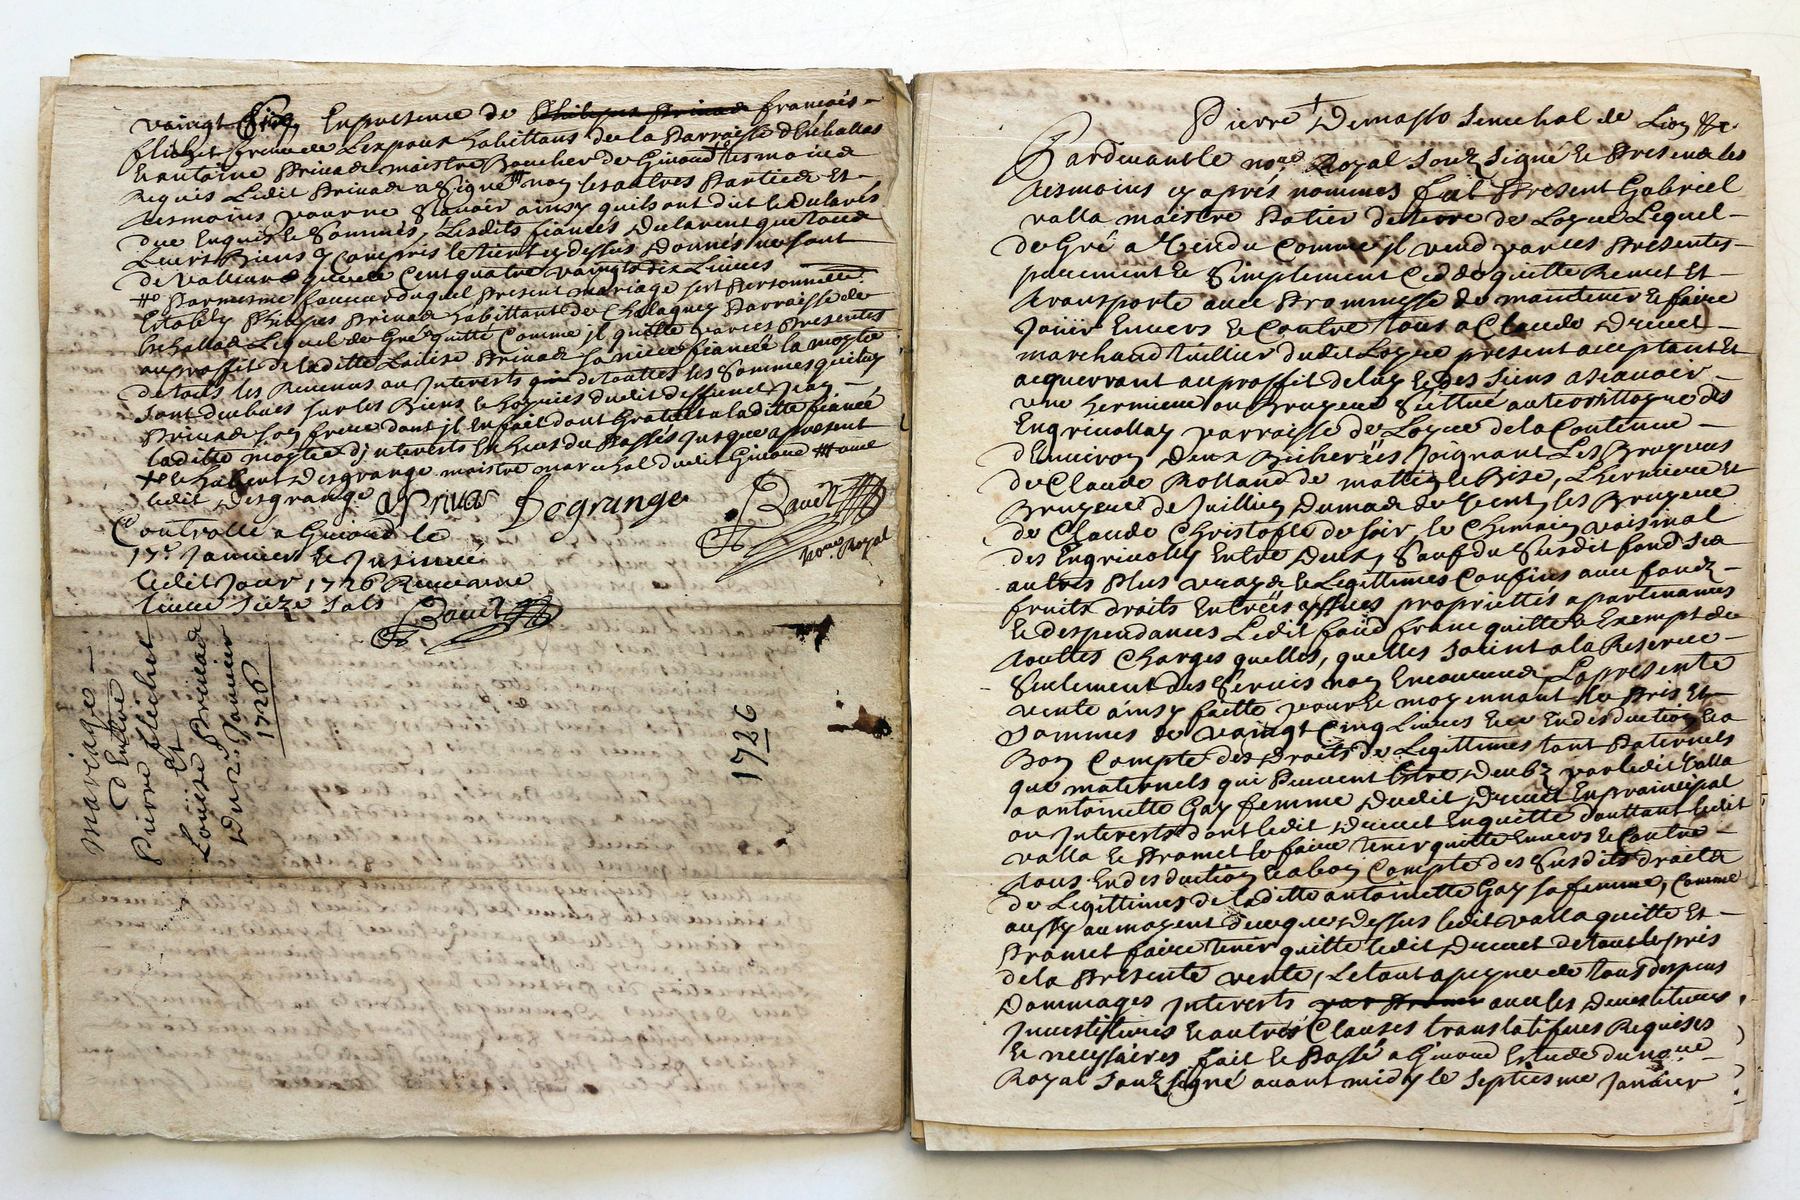 vaingt six, En presence de Philipes Privad francois
flichet frere de Lexpoux habittans de la Parroisse d'Echallas
& antoine Privad maistre Boucher de Givord tesmoins
Requis Ledit Privad a Signé non les autres Parties Et
tesmoins pour ne Scavoir ainsy quils ont dit & declarés
due Enquis & Sommés, Lesdits fiancés declarent que tous
Leurs Biens y Compris le tient cy dessus donnés ne sont
de valleur que de Cent quatre vaingts dix Livres
Parmesme faveur duquel present mariage sest Personnellem.
Estably Philipes Privad habittant de Chalagney Parroisse de
Echallas Lequel de Gré quitte Comme jl quitte par ces presentes
au proffit de laditte Louise Privad sa niece fiancée la moytie
de tous les Revenus ou Interests de touttes les Sommes qui luy
sont deubues sur les Biens & hoyries dudit deffunct Jean
Privad son frere dont jl En fait don Gratuit a laditte fiancée
laditte moytie d'jnterests Echeus du Passés jusque a present
& hubert desgrange maistre mareschal dudit Givord avec
ledit desgrange
a Privas Degrange David
no.re Royal
Controllé a Givord le
17e Janvier & Insinué
ledit Jour 1726 Receu une
livre seize sols
David
mariage
d'Entre
Pierre flichet
Et
Louise Privad
Du 2e Janvier
1726
1726
Pierre Demasso Senechal de Lion &c
Pardevant le no.re Royal Souz Signé & Presents les
tesmoins cy aprés nommes fut Present Gabriel
valla maistre Potier de terre de Loyre Lequel
de Gré a vendu Comme jl vend par ces Presentes
purement & Simplement Cedde quitte Remet Et
transporte avec Prommesse de maintenir & faire
Jouir Envers & Contre tous a Claude Drevet
marchand tuillier dudit Loyre present acceptant Et
acquerrant au proffit de luy & des siens ascavoir
une hermiere ou Bruyere Scittue au territtoyre des
Engrivollay parroisse de Loyre de la Contenue
d'Environ deux Bicherées Joignant Les Bruyeres
de Claude Rolland de mattin & Bise, L'hermiere Et
Bruyere de Jullien Dumad de vent, les Bruyere
de Claude Christofle de soir, le Chemain voisinal
des Engrivolley Entre deux, Sauf du Susdit fond ses
autres Plus vrays & Legittimes Confins avec fondz
fruits droits Entrées yssues propriettés apartenances
& despendances Ledit fond franc quitte & Exempt de
touttes Charges quelles, quelles soient a la Reserve
Seulement des Servis non Encourus La presente
vente ainsy faitte pour & moyennant le Pris Et
sommes de vaingt Cinq Livres & ce En desduction & a
Bon Compte des Droits de Legittimes tant Paternels
que maternels qui Peuvent Estre Deubz par ledit valla
a antoinette Gay femme dudit Drevet En prainsipal
ou Interests dont ledit Drevet Enquitte d'auttant ledit
valla & Promet le faire tenir quitte Envers & Contre
tous En desduction & a bon Compte des Susdits droits
de Legittimes de laditte antoinette Gay sa femme, Comme
aussy au moyent de ce que dessus ledit valla quitte Et
Promet faire tenir quitte ledit Drevet de tout le pris
de la Presente vente, Le tout a peyne de tous despens
Dommages jnterests avec les devestitures
Jnvestitures & autres Clauses translatifves Requises
& necessaires fait & Passé a Givord Estude du no.re
Royal Souz signé avant midy le septiesme Janvier